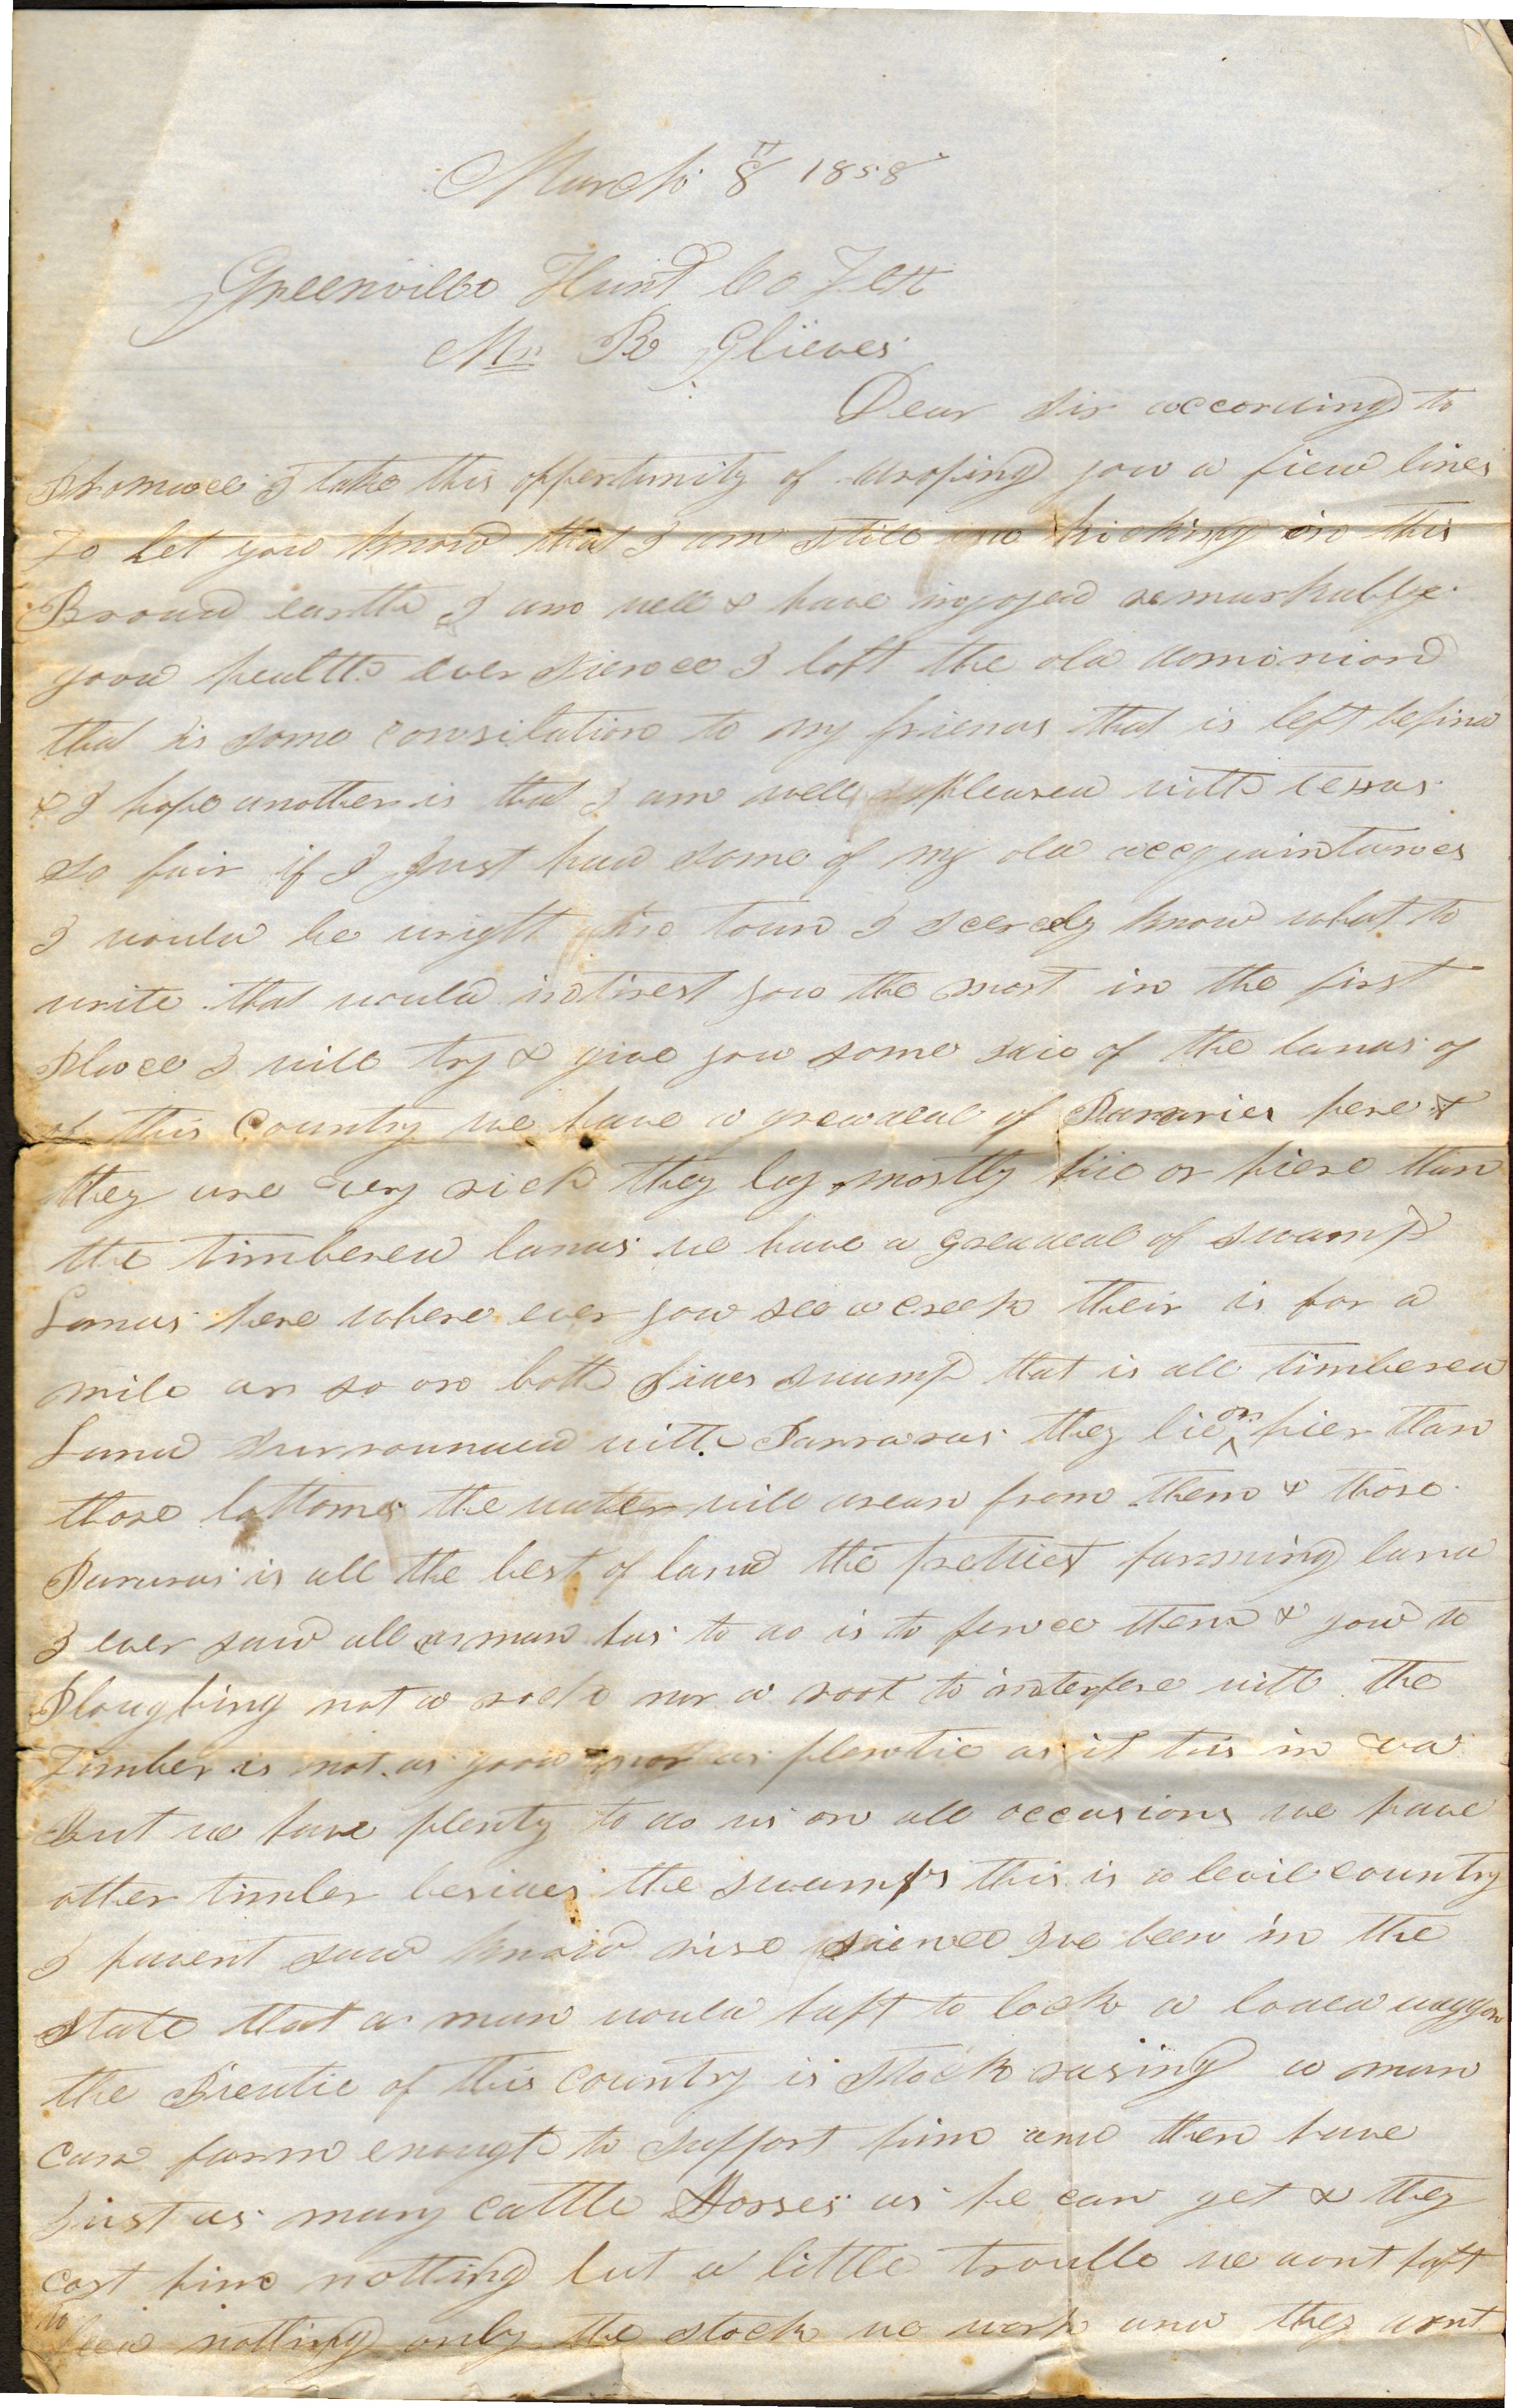 March 8th 1858
Greenville Hunt Co Texs
Mr R Glieves
Dear Sir accoruing to
promace I take this oppertunity of droping you a fiew lines
To let you know that I am still kicking on this
Broad earth I am well & have ingoyed remarkable
good health ever sience I left the old dominion
that is some consilation to my friends that is left behind
& I hope another is that I am well pleased with texas
so fair if I Just had some of my old acquaintances
I would be wright I scercely know what to
write that would intirest you the most in the first
place I will try & give you some of the lands of
of this Country we have a greadeal of Parraries here &
they are very rich they lay mostly hie or hiere than
the timbered lands we have a greadeal of swamp
Lands here where ever you see a creek their is for a
mile or so on both Sides swamp that is all timbered
Land surrounded with Parraras they lie on hier than
those bottoms the water will drean from them & those
Pararas is all the best of land the prettiest farming land
I ever saw all a man has to do is to fence them & go to
Ploughing not a rock nor a root to interfere with the
Timber is not as good nor as plentie as it tis in va
But we have plenty to do us on all occasions we have
other timber besides the swamps this is a levil country
I havent saw rise sience Ive been in the
State that a man would haft to lock a loaded waggon
the Bieutie of this country is Stock rasing a man
can farm enough to support him and then have
Just as many cattle Horses as he can get & they
cost him nothing but a little trouble we dont haft
to feed nothing only the stock we work and they dont